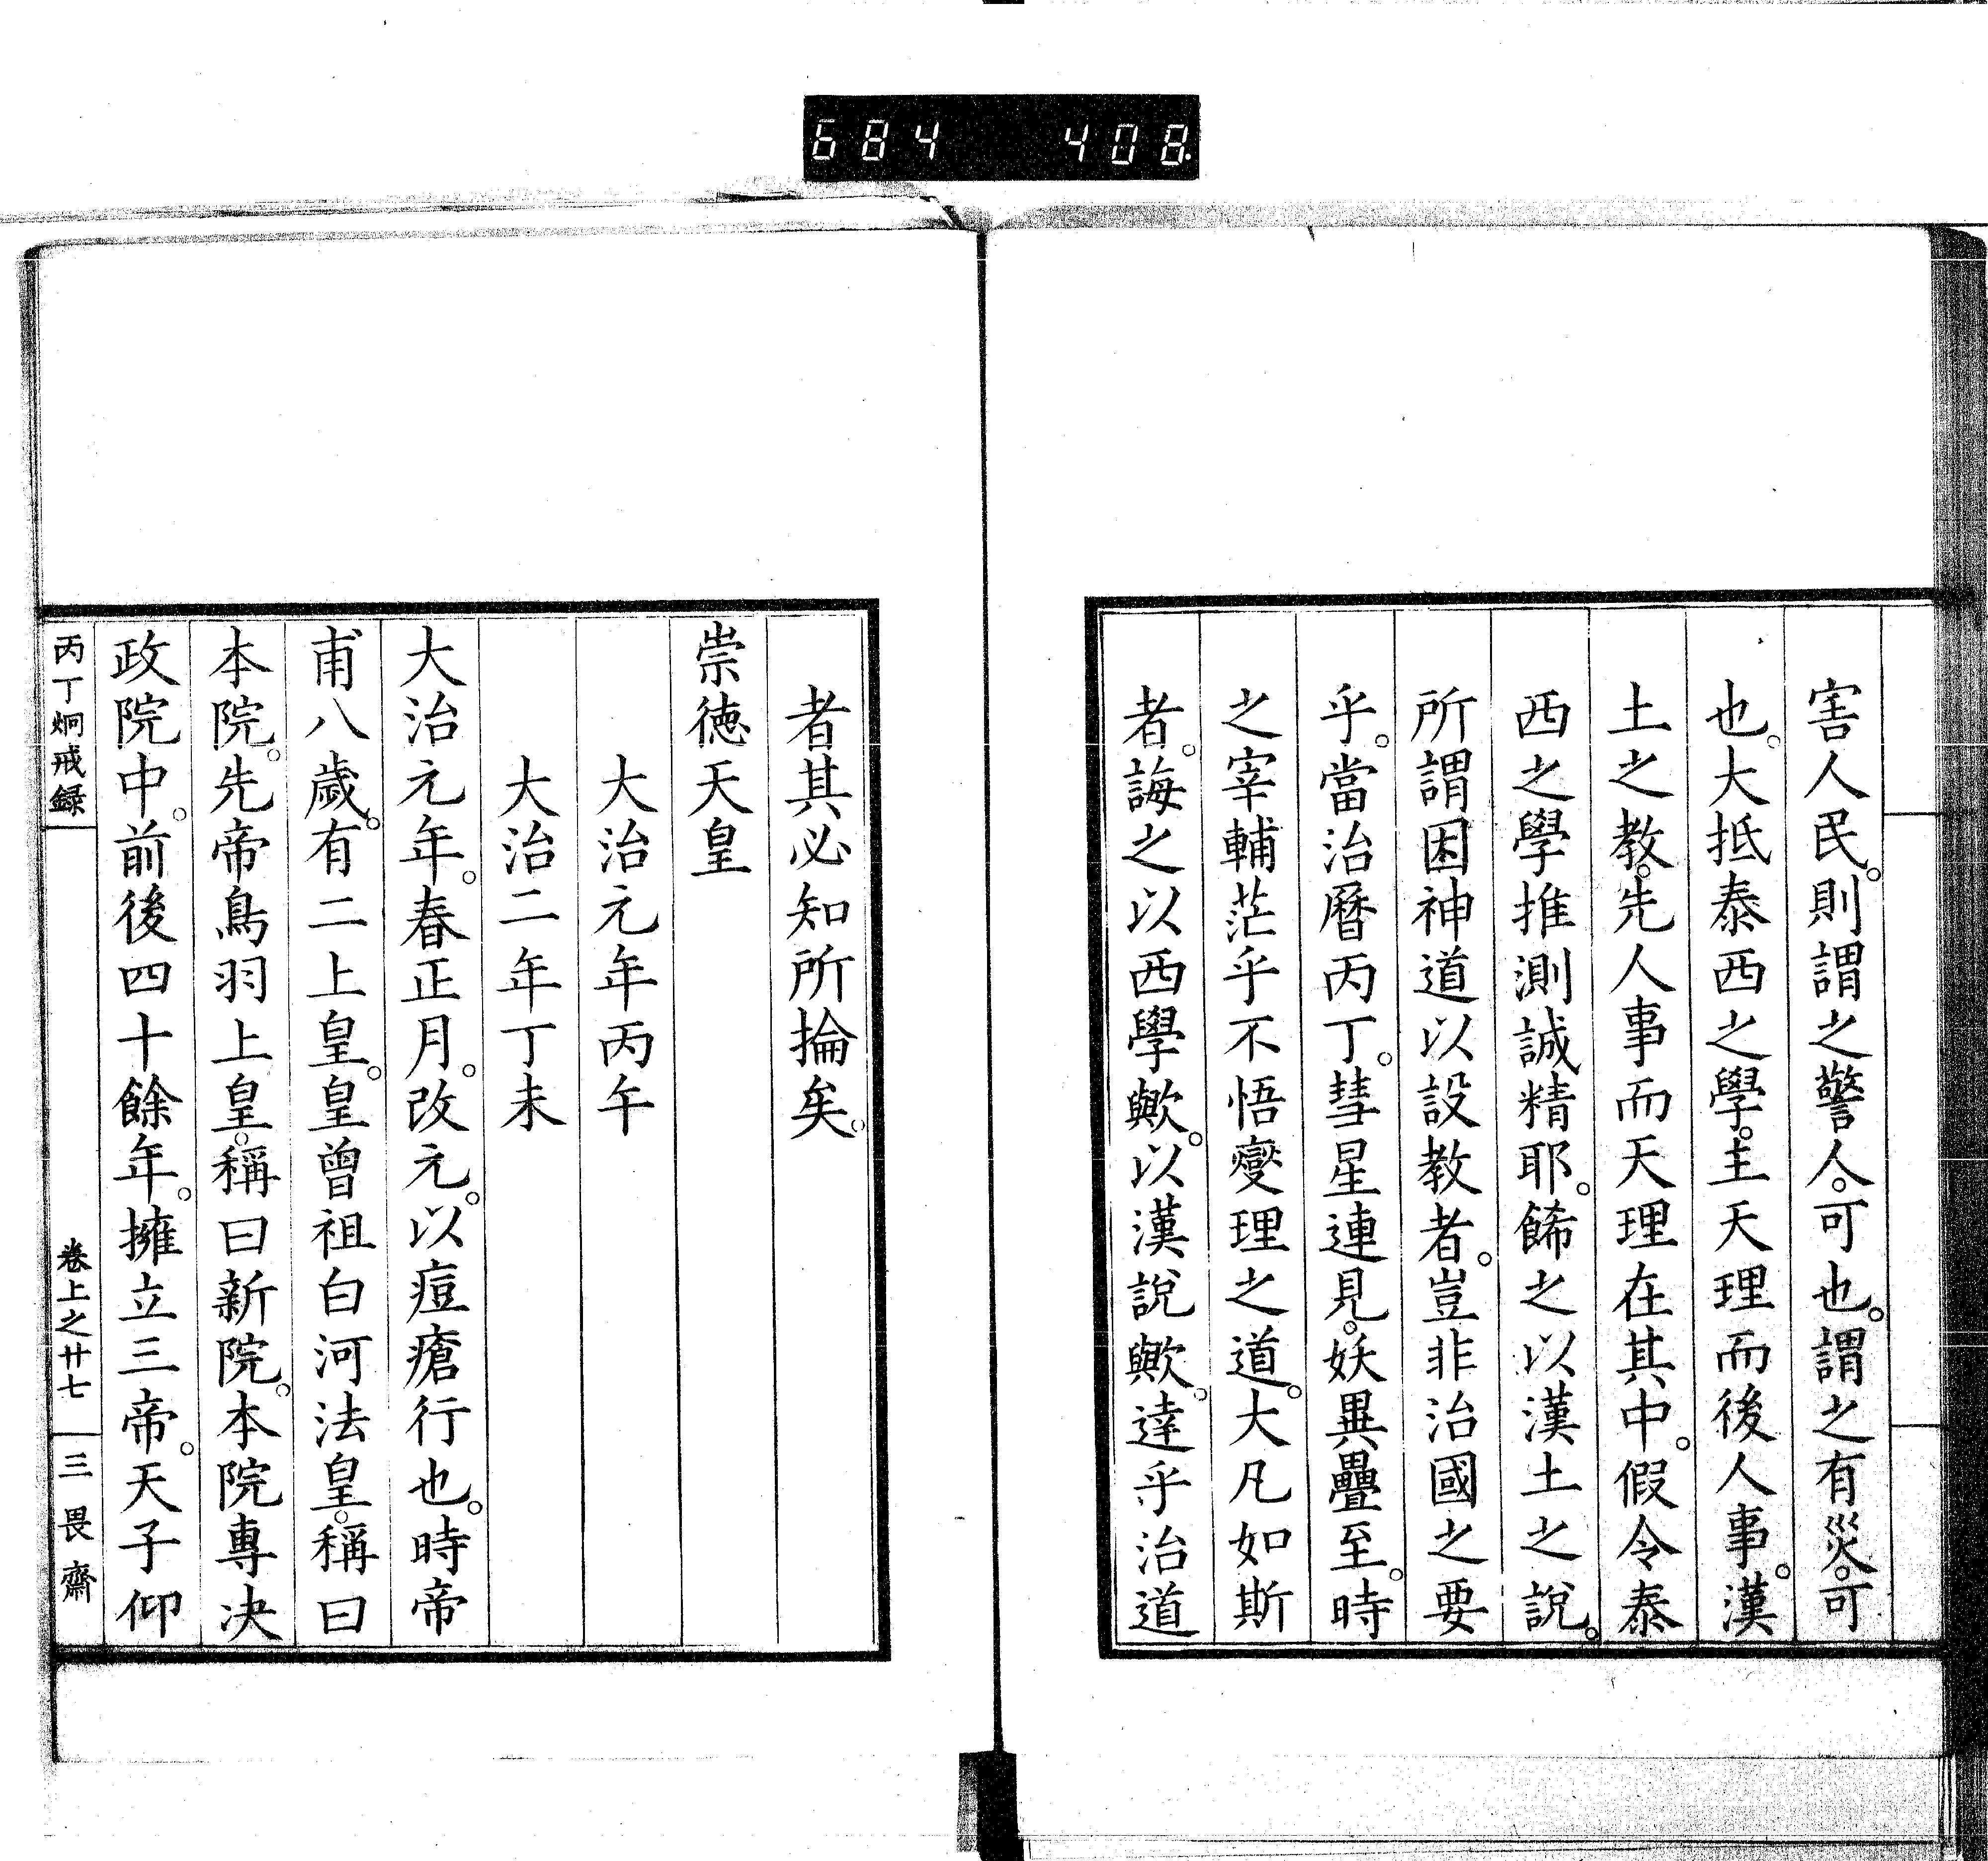 684 408
害人民。則謂之警人。可也。謂之有災。可
也。大抵泰西之學。主天理而後人事。漢
土之教。先人事而天理在其中。假令泰
西之學推測誠精耶。餙之以漢土之說。
所謂因神道以設教者。豈非治國之要
乎。當治曆丙丁。彗星連見。妖異疊至。時
之宰輔茫乎不悟燮理之道。大凡如斯
者。誨之以西學歟。以漢說歟。達乎治道
者其必知所掄矣。
崇徳天皇
大治元年丙午
大治二年丁未
大治元年。春正月。改元。以痘瘡行也。時帝
甫八歲。有二上皇。皇曾祖白河法皇。稱曰
本院。先帝鳥羽上皇。稱曰新院。本院專决
政院中。前後四十餘年。擁立三帝。天子仰
丙丁炯戒録 卷上之廿七 三畏齋